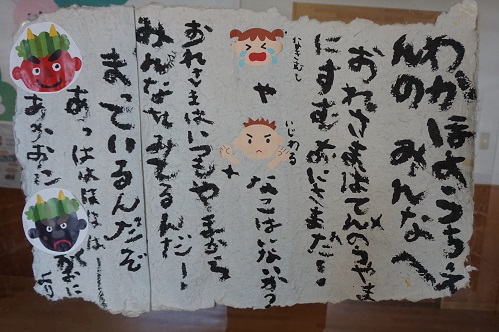 わかほようちえ
んの みんなへ
おれさまはてんのうやま
にすむ おにさまだー!
なきむし
や
いじわる
な こはいないかっ
おれさまはいつもやまから
みんなをみてるんだー!
まっているんだぞ
あっははははは
あかおに